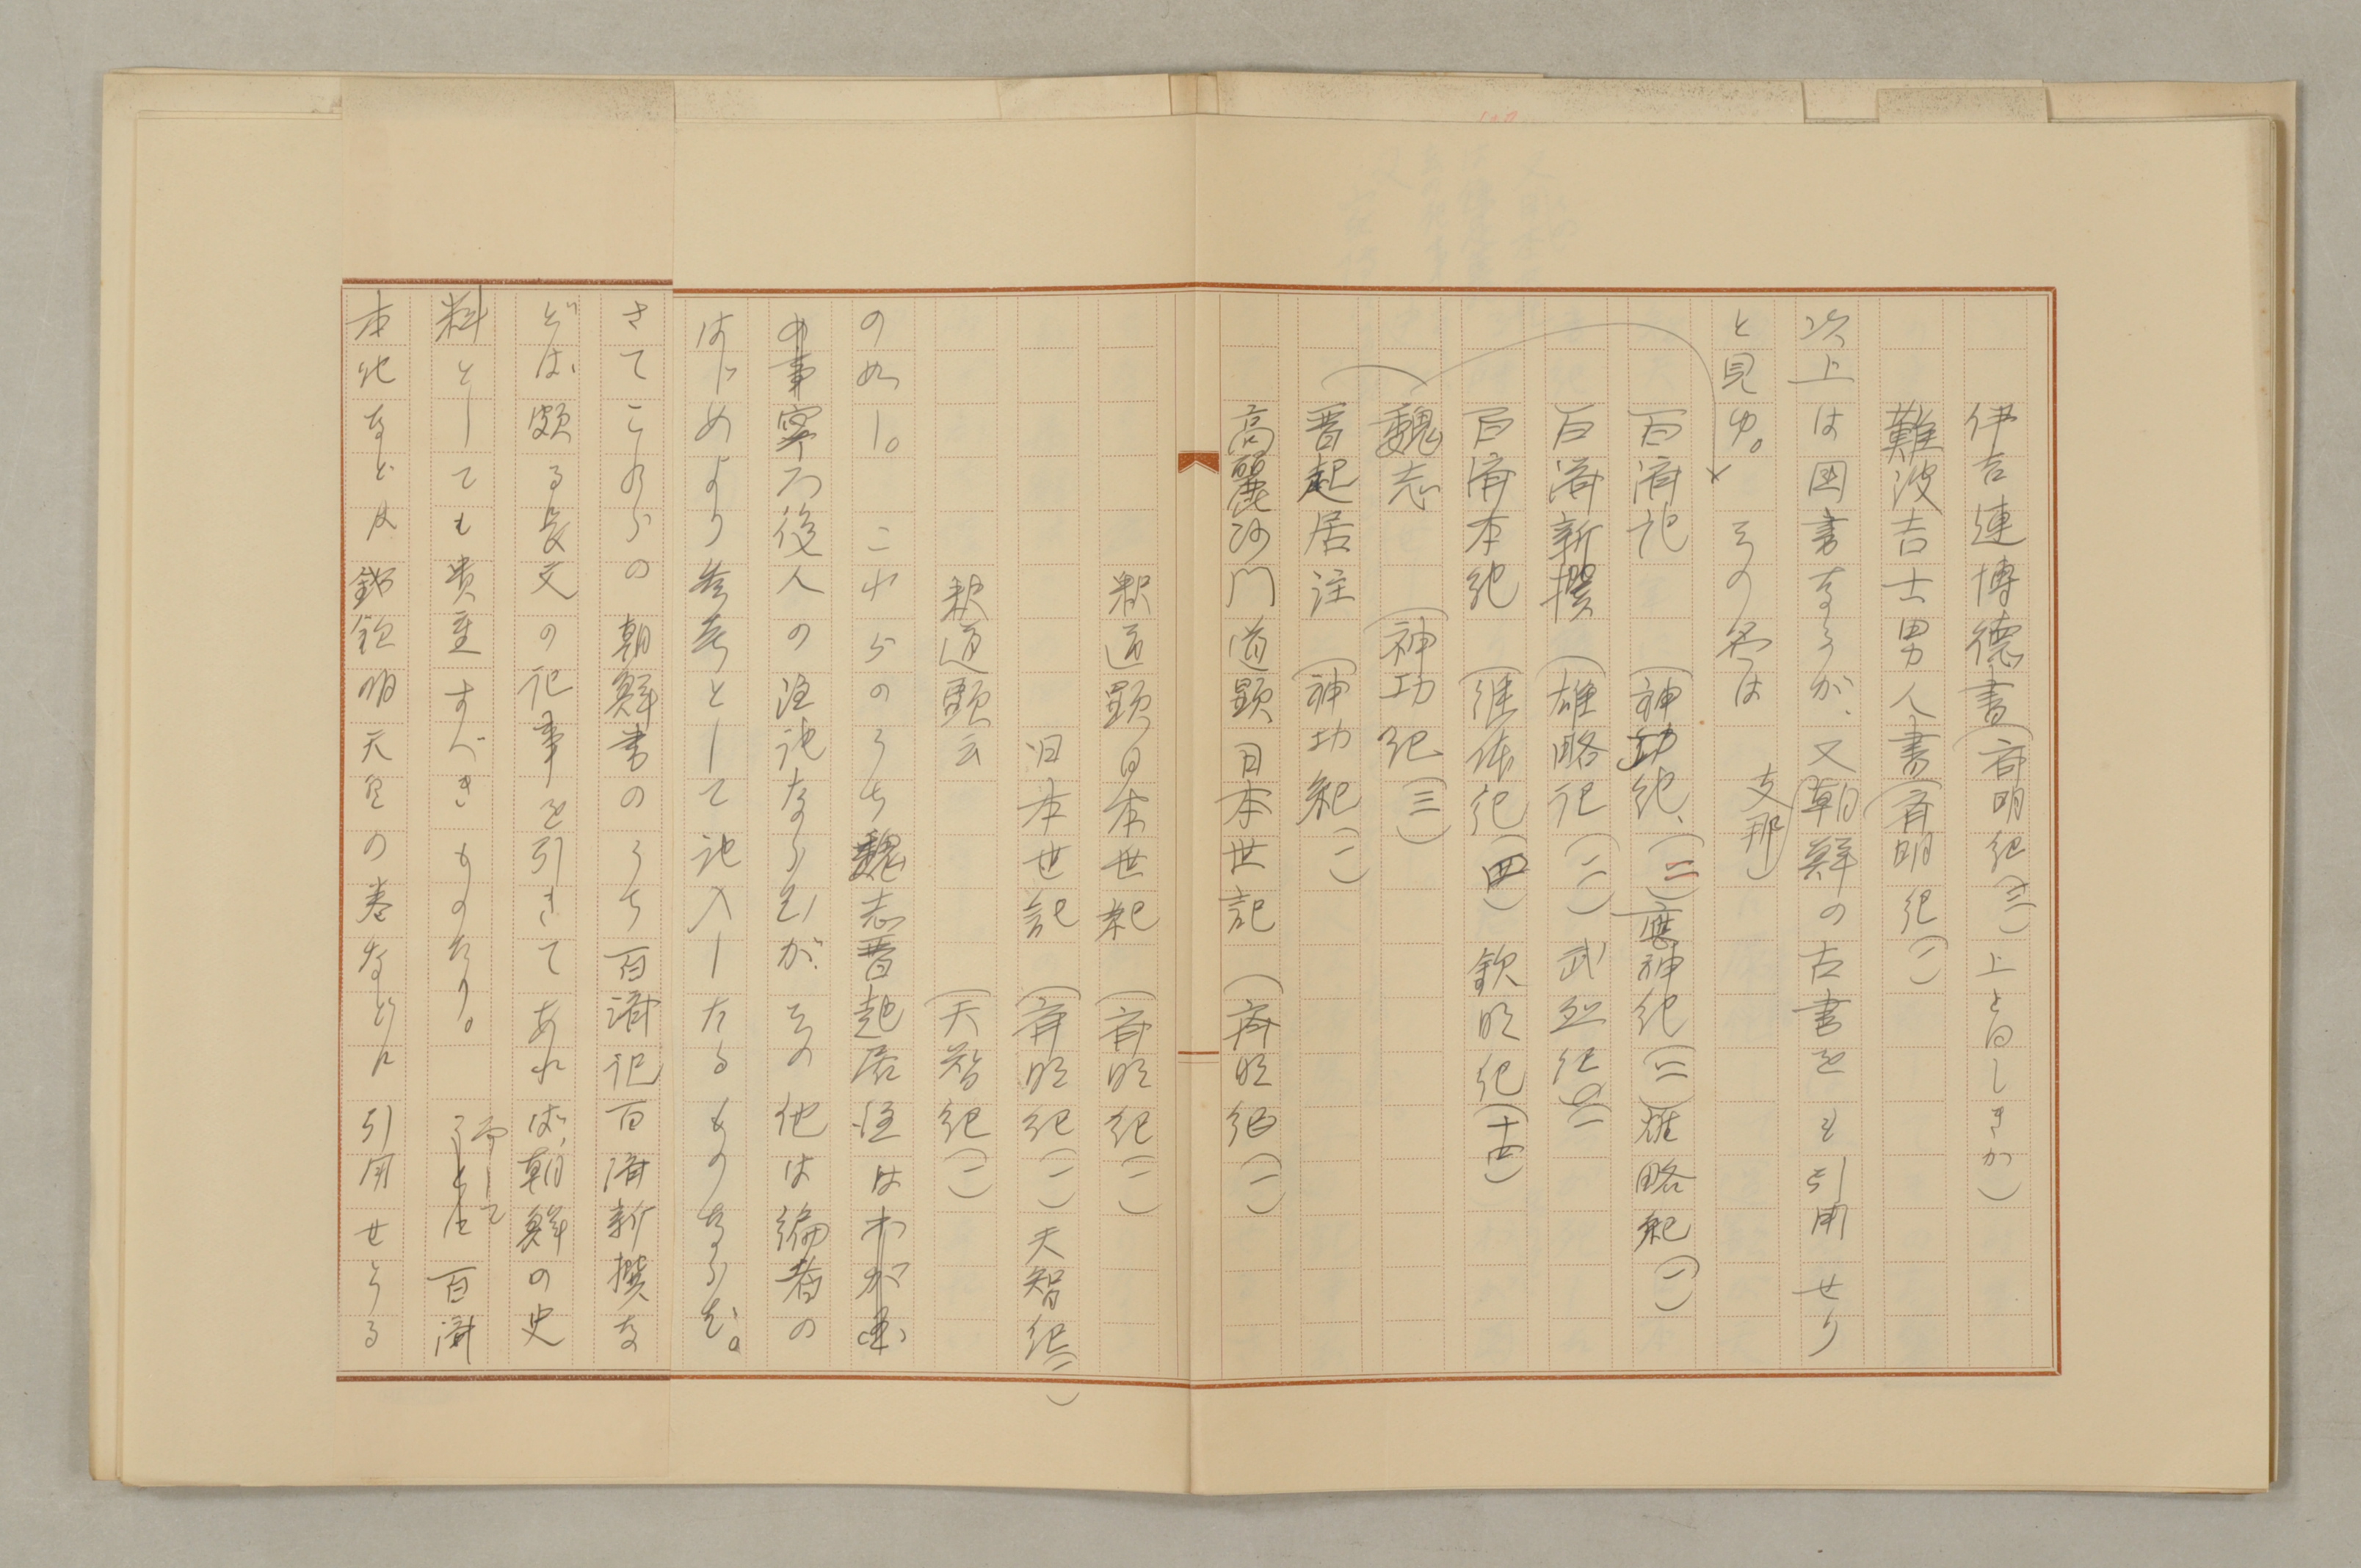 伊吉連博徳書(斉明紀(三)上と同しきか)
難波吉士男人書(斉明紀(一)
以上は国書なるが、又朝鮮の古書をも引用せり
支那
と見ゆ。その名は
百済記 (神功紀、(二)應神紀(二)雄略紀(一)
百済新撰(雄略記(二)武烈紀(一)
百済本紀 (継体紀(四)欽明紀(十四)
魏志 (神功紀(三)
晋起居注 (神功紀(一)
高麗沙門道顕日本世記 (斉明紀(一)
釈道顕日本世紀 (斉明紀(一)
旧本世記 (斉明紀(一)天智紀(一)
釈道顕云 (天智紀(一)
のめし。 これらのうち魏志晋起居注はわが国
の事寧ろ後人の注記ならむが、その他は編者の
はじめより参考として記入したるものならむ。
さてこれらの朝鮮書のうち百済記百済新撰な
どは頗る長文の記事を引きてあれば、朝鮮の史
料としても貴重すべきものなり。 百済
而して
本記などは 欽明天皇の巻などに引用せらる